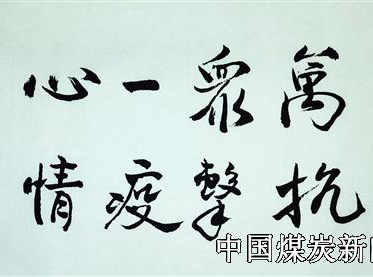 萬衆一心
抗擊疫情
中国煤炭新